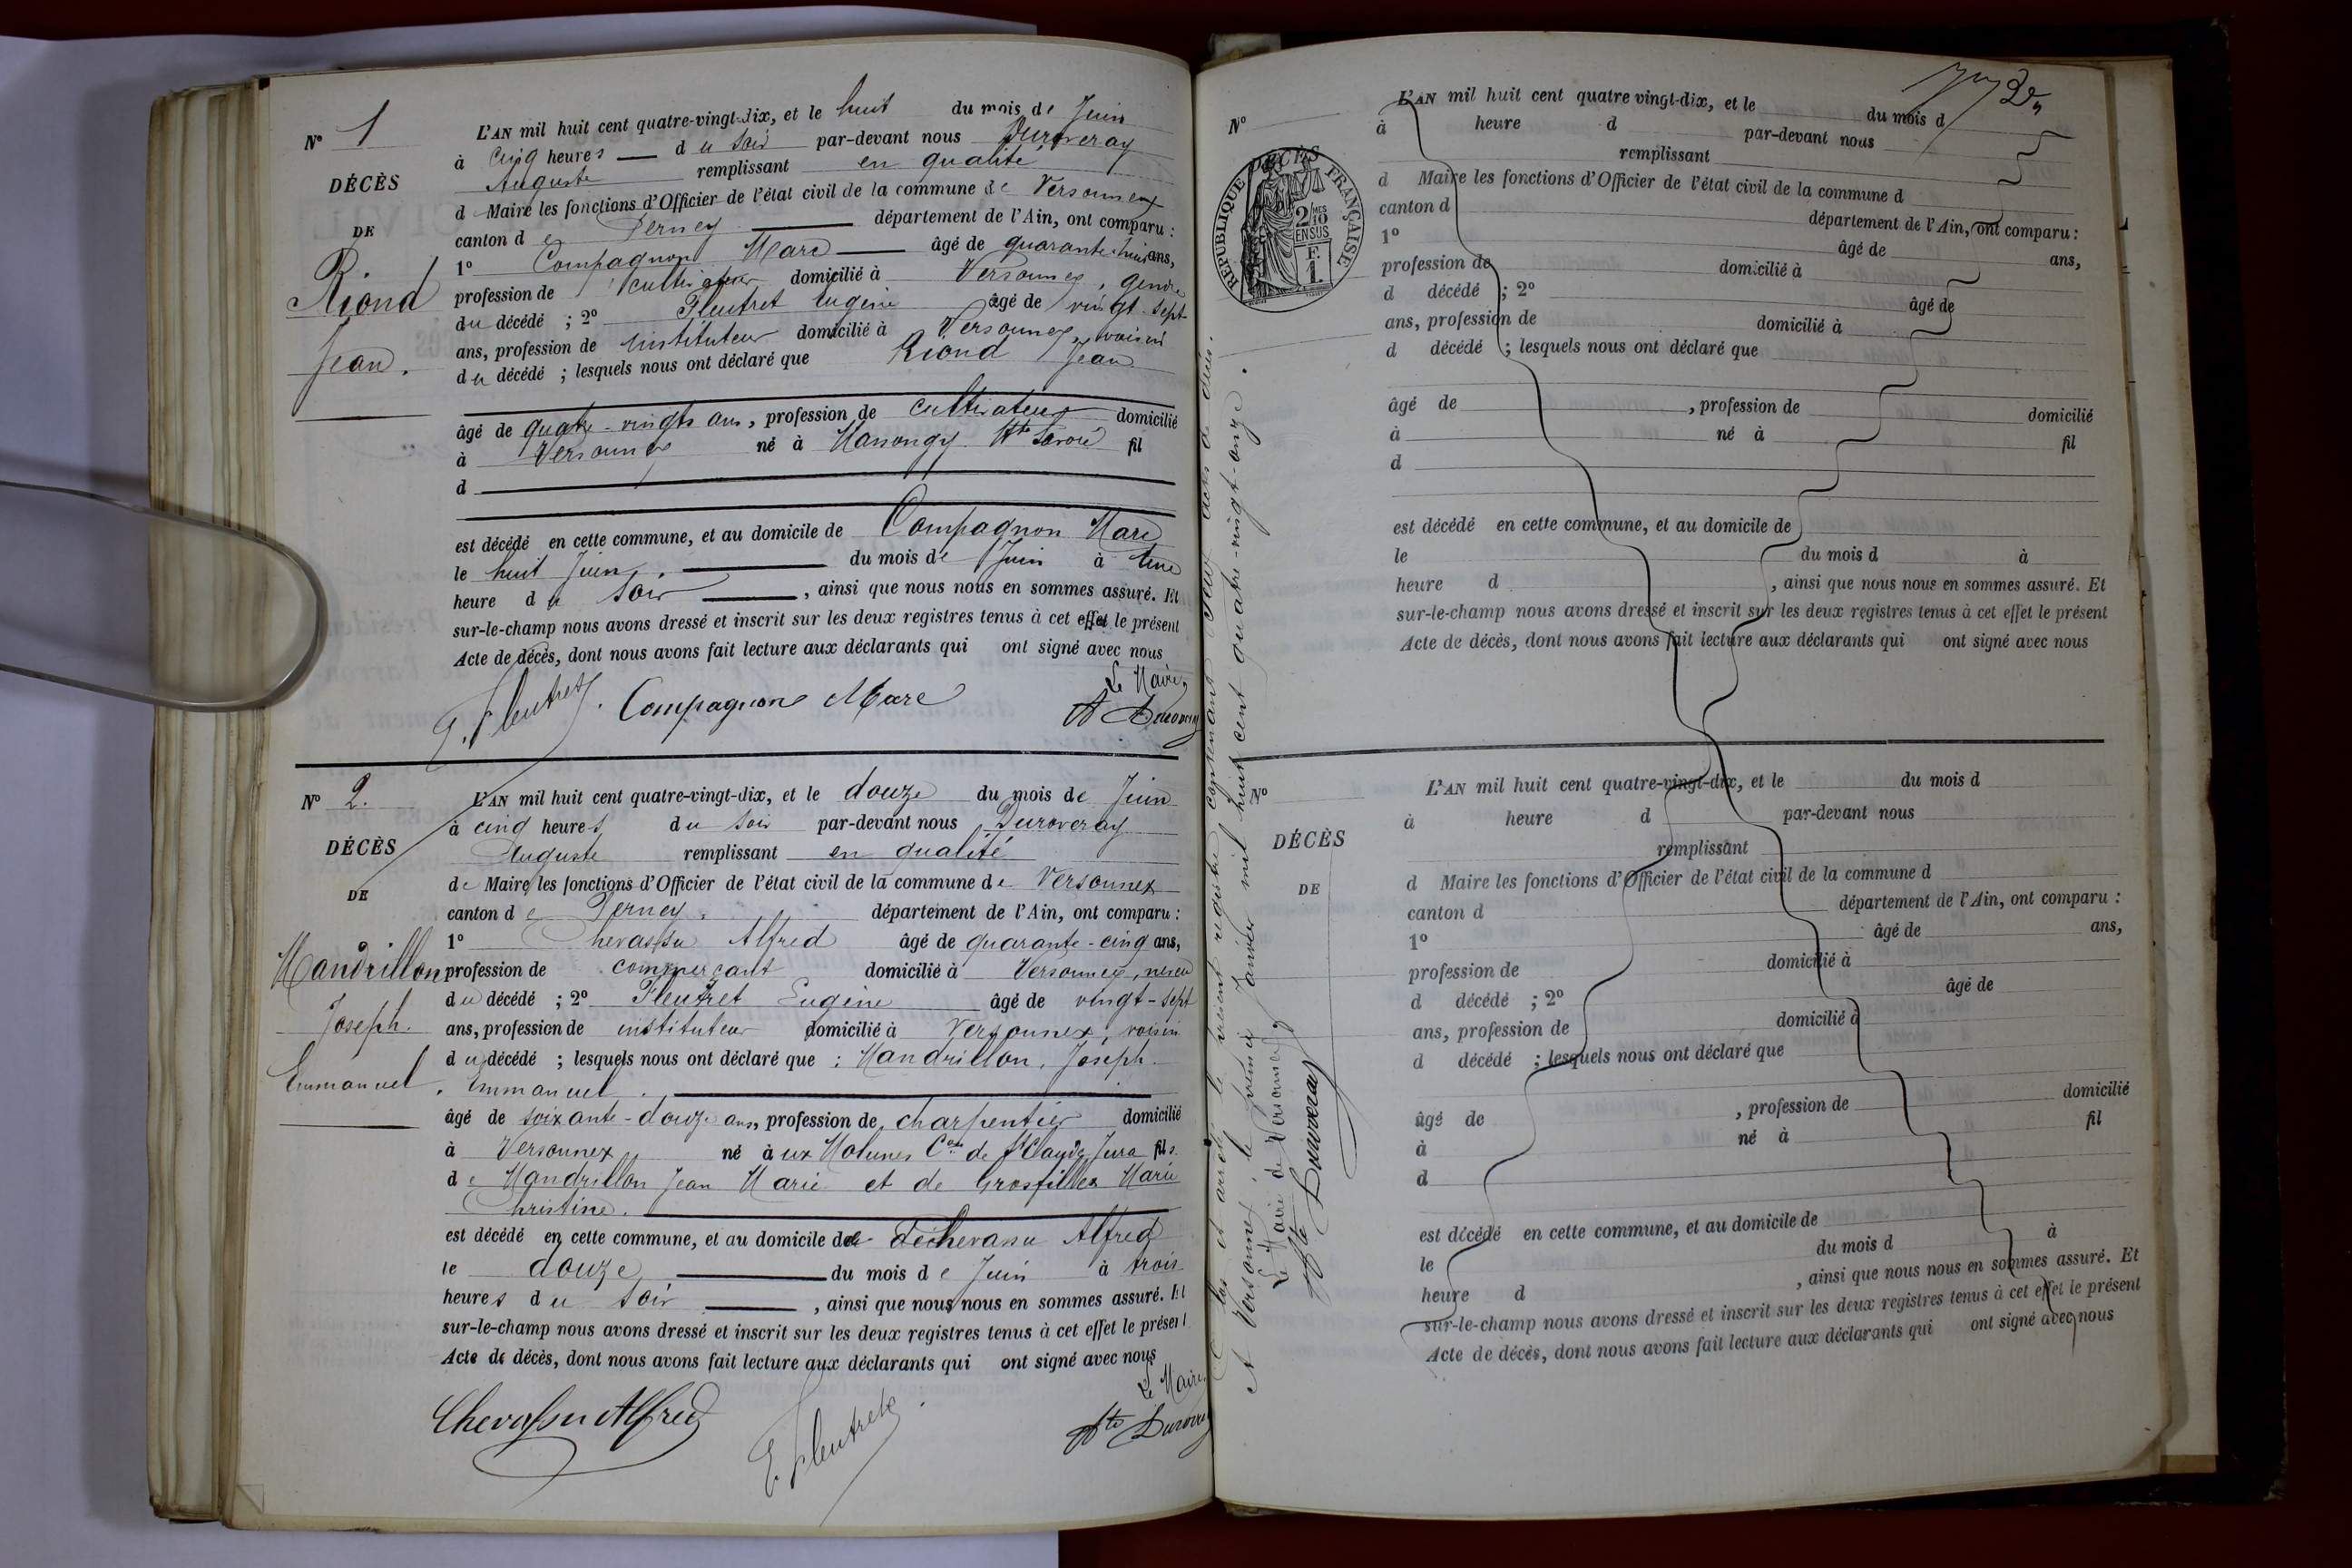 N° 1
DÉCÈS
DE
Riond
Jean.
L'AN mil huit cent quatre-vingt-dix, et le huit du mois de Juin
à cinq heures du soir par-devant nous Duroveray
Auguste remplissant en qualité
d Maire les fonctions d'Officier de l'état civil de la commune de Versonnex
canton de Ferney département de l'Ain, ont comparu :
1° Compagnon Marc âgé de quarante-huit ans,
profession de cultivateur domicilié à Versonnex, gendre
du décédé ; 2° Fleutret Eugène âgé de vingt-sept
ans, profession de instituteur domicilié à Versonnex, voisin
du décédé ; lesquels nous ont déclaré que Riond Jean
âgé de quatre-vingts ans, profession de cultivateur domicilié
à Versonnex né à Hte Savoie fil
d
est décédé en cette commune, et au domicile de Compagnon Marc
le huit Juin. du mois de Juin à une
heure du soir, ainsi que nous nous en sommes assuré. Et
sur-le-champ nous avons dressé et inscrit sur les deux registres tenus à cet effet le présent
Acte de décès, dont nous avons fait lecture aux déclarants qui ont signé avec nous
Le Maire,
Fleutret. Compagnon Marc Duroveray
N° 2.
DÉCÈS
DE
Mandrillon
Joseph.
Emmanuel.
L'AN mil huit cent quatre-vingt-dix, et le douze du mois de Juin
à cinq heures du soir par-devant nous Duroveray
Auguste remplissant en qualité
de Maire les fonctions d'Officier de l'état civil de la commune de Versonnex
canton de Ferney. département de l'Ain, ont comparu :
1° Chevassu Alfred âgé de quarante-cinq ans,
profession de commerçant domicilié à Versonnex, neveu
du décédé ; 2° Fleutret Eugène âgé de vingt-sept
ans, profession de instituteur domicilié à Versonnex, voisin
du décédé ; lesquels nous ont déclaré que : Mandrillon, Joseph.
Emmanuel.
âgé de soixante-douze ans, profession de charpentier domicilié
à Versonnex né aux Molunes Con de St Claude Jura fils
de Mandrillon Jean Marie et de Grosfillex Marie
Christine.
est décédé en cette commune, et au domicile de Chevassu Alfred
le douze du mois de Juin à trois
heures du soir, ainsi que nous nous en sommes assuré. Et
sur-le-champ nous avons dressé et inscrit sur les deux registres tenus à cet effet le présent
Acte de décès, dont nous avons fait lecture aux déclarants qui ont signé avec nous
Le Maire,
Chevassu Alfred E. Fleutret. Ate Duroveray
Clos et arrêté le présent registre contenant deux actes de décès.
A Versonnex, le premier Janvier mil huit cent quatre-vingt-onze.
Le Maire de Versonnex,
Ate Duroveray
N°
RÉPUBLIQUE FRANÇAISE
DÉCÈS
2/10 MES
EN SUS
F.
1.
L'AN mil huit cent quatre vingt-dix, et le du mois d
à heure d par-devant nous
remplissant
d Maire les fonctions d'Officier de l'état civil de la commune d
canton d département de l'Ain, ont comparu :
1° âgé de ans,
profession de domicilié à
d décédé ; 2° âgé de
ans, profession de domicilié à
d décédé ; lesquels nous ont déclaré que
âgé de , profession de domicilié
à né à fil
d
est décédé en cette commune, et au domicile de
le du mois d à
heure d , ainsi que nous nous en sommes assuré. Et
sur-le-champ nous avons dressé et inscrit sur les deux registres tenus à cet effet le présent
Acte de décès, dont nous avons fait lecture aux déclarants qui ont signé avec nous
N°
DÉCÈS
DE
L'AN mil huit cent quatre-vingt-dix, et le du mois d
à heure d par-devant nous
remplissant
d Maire les fonctions d'Officier de l'état civil de la commune d
canton d département de l'Ain, ont comparu :
1° âgé de ans,
profession de domicilié à
d décédé ; 2° âgé de
ans, profession de domicilié à
d décédé ; lesquels nous ont déclaré que
âgé de , profession de domicilié
à né à fil
d
est décédé en cette commune, et au domicile de
le du mois d à
heure d , ainsi que nous nous en sommes assuré. Et
sur-le-champ nous avons dressé et inscrit sur les deux registres tenus à cet effet le présent
Acte de décès, dont nous avons fait lecture aux déclarants qui ont signé avec nous